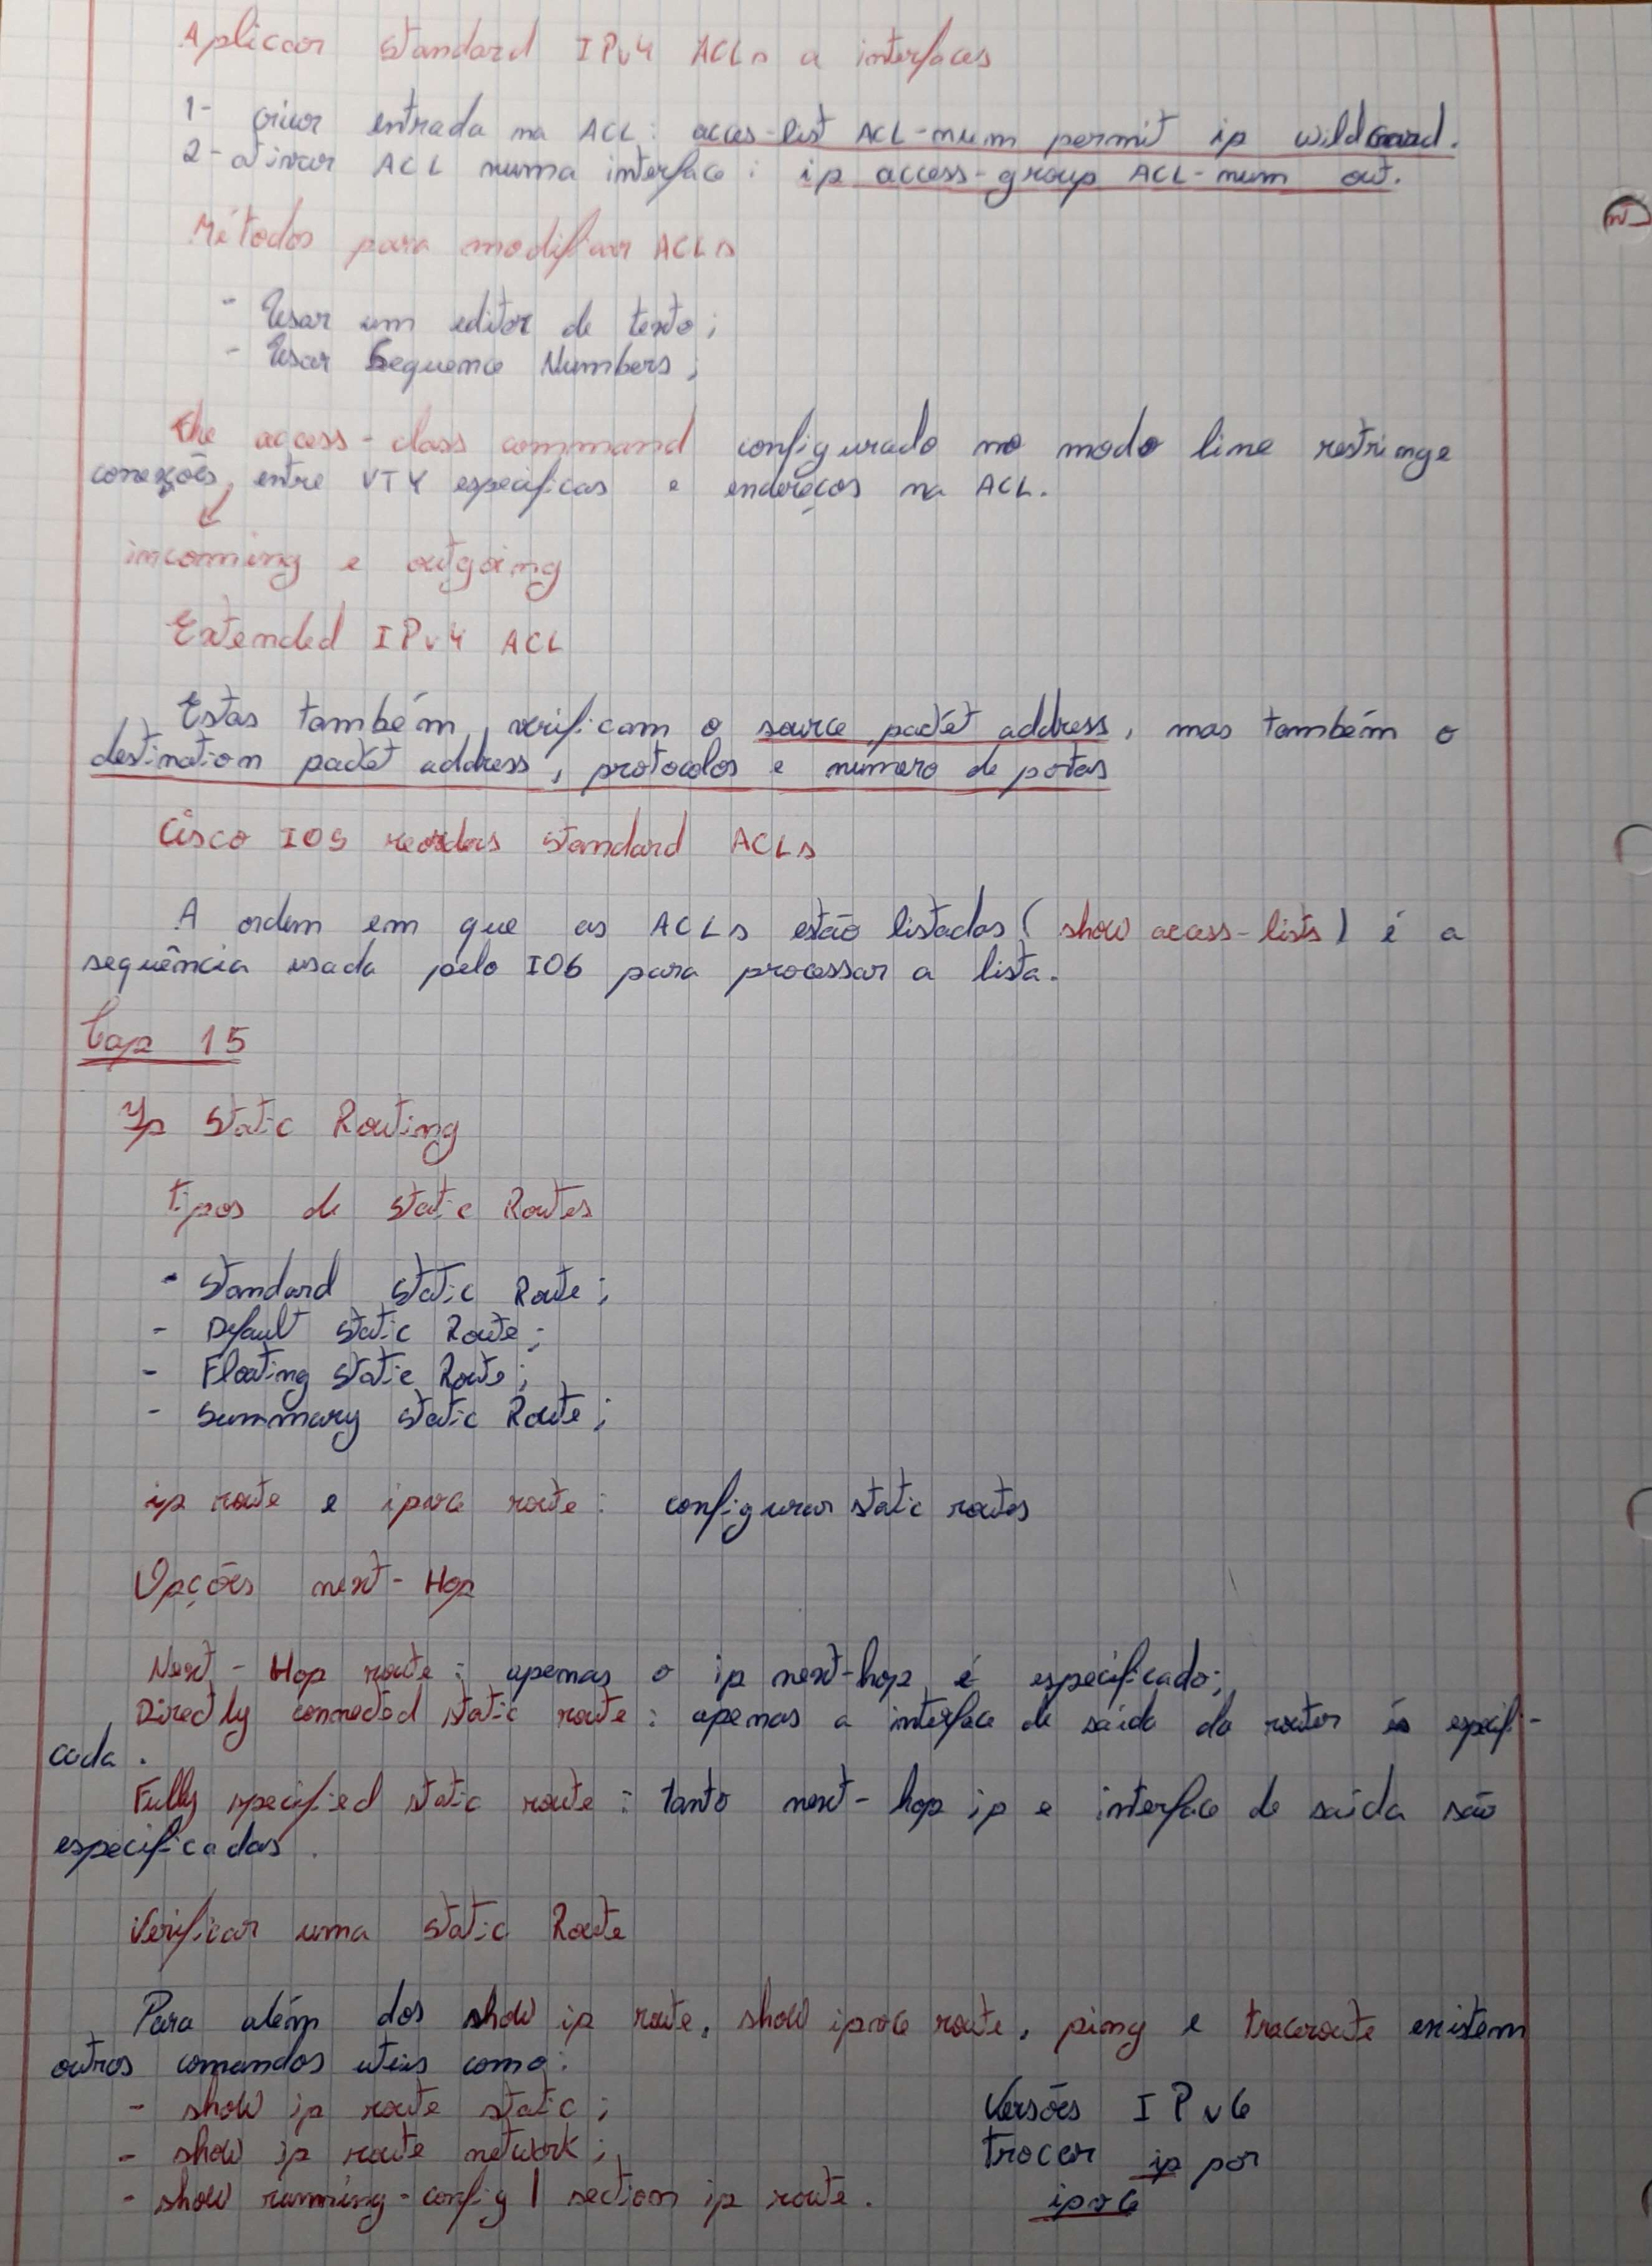 Aplicar standard IPv4 ACLs a interfaces
1- criar entrada na ACL: acces-list ACL-num permit ip wildcard.
2- ativar ACL numa interface: ip access-group ACL-num out.
Métodos para modificar ACLs
- Usar um editor de texto;
- Usar Sequence Numbers;
the access-class command configurado no modo line restringe
conexões entre VTY especificas e endereços na ACL.
incoming e outgoing
Extended IPv4 ACL
Estas também verificam o source packet address, mas também o
destination packet address, protocolos e número de portas
Cisco IOS reorders standard ACLs
A ordem em que as ACLs estão listadas (show access-lists) é a
sequência usada pelo IOS para processar a lista.
Cap 15
Ip Static Routing
Tipos de Static Routes
- Standard Static Route;
- Default Static Route;
- Floating Static Route;
- Summary Static Route;
ip route e ipv6 route: configurar static routes
Opções next-Hop
Next-Hop route: apenas o ip next-hop é especificado;
Directly connected static route: apenas a interface de saída do router é especifi-
cada.
Fully specified static route: tanto next-hop ip e interface de saída são
especificadas.
Verificar uma Static Route
Para além dos show ip route, show ipv6 route, ping e traceroute existem
outros comandos uteis como:
- show ip route static;
- show ip route network;
- show running-config | section ip route.
Versões IPv6
trocar ip por
ipv6